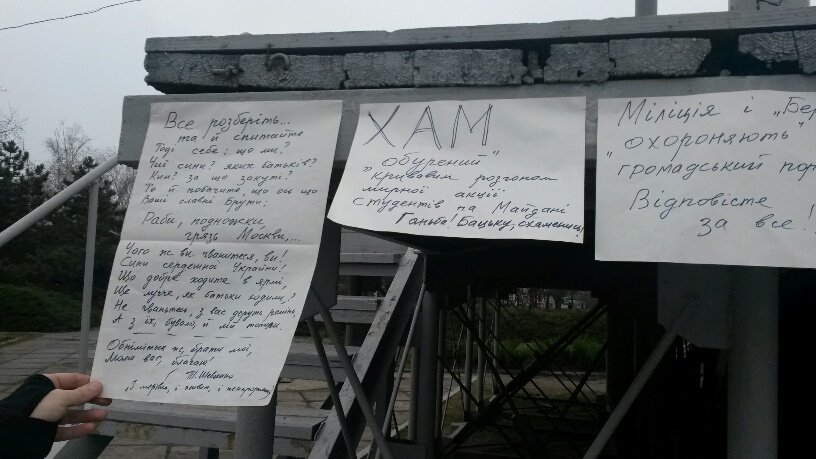 Все розберіть...
та й спитайте
Тоді себе: що ми?
Чиї сини? яких батьків?
Ким? за що закуті?
То й побачите, що ось що
Ваші славні Брути:
Раби, подножки
грязь Москви,...
Чого ж ви чванитеся, ви!
Сини сердешної України!
Що добре ходите в ярмі,
Ще лучче, як батьки ходили,?
Не чваньтесь, з вас деруть ремінь,
А з їх, бувало, й лій топили.
Обніміться ж, брати мої,
Молю вас, благаю!
Т. Шевченко
„І мертвим, і живим, і ненародженим
ХАМ
обурений"
„кривавим розгоном
мирної акції
студентів на Майдані
Ганьба! Бацьку, схаменись!
Міліція і „Бер
"охороняють"
"громадський пор
Відповісте
за все!